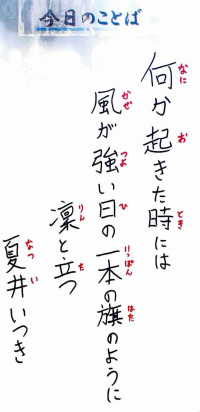 今日のことば
何か起きた時には
風が強い日の一本の旗のように
凛と立つ
夏井いつき
なに
お
とき
かぜ
つよ
ひ
いっぽん
はた
りん
た
なつ
い